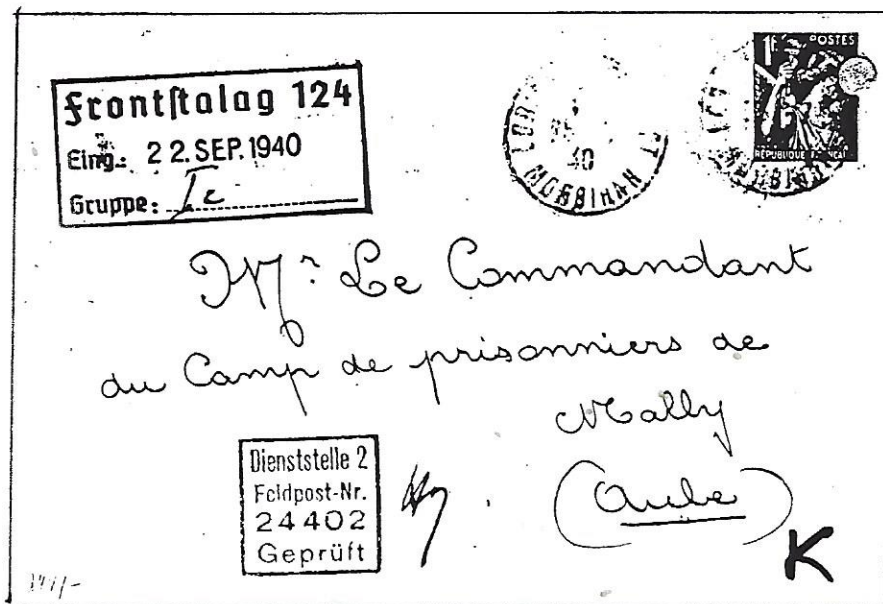 Frontstalag 124
Eing.: 22. SEP. 1940
Gruppe: Ic
40
MORBIHAN
1F POSTES
RÉPUBLIQUE FRANÇAI
MORBIHAN
Mr. Le Commandant
du Camp de prisonniers de
Mailly
(Aube)
Dienststelle 2
Feldpost-Nr.
24402
Geprüft
K